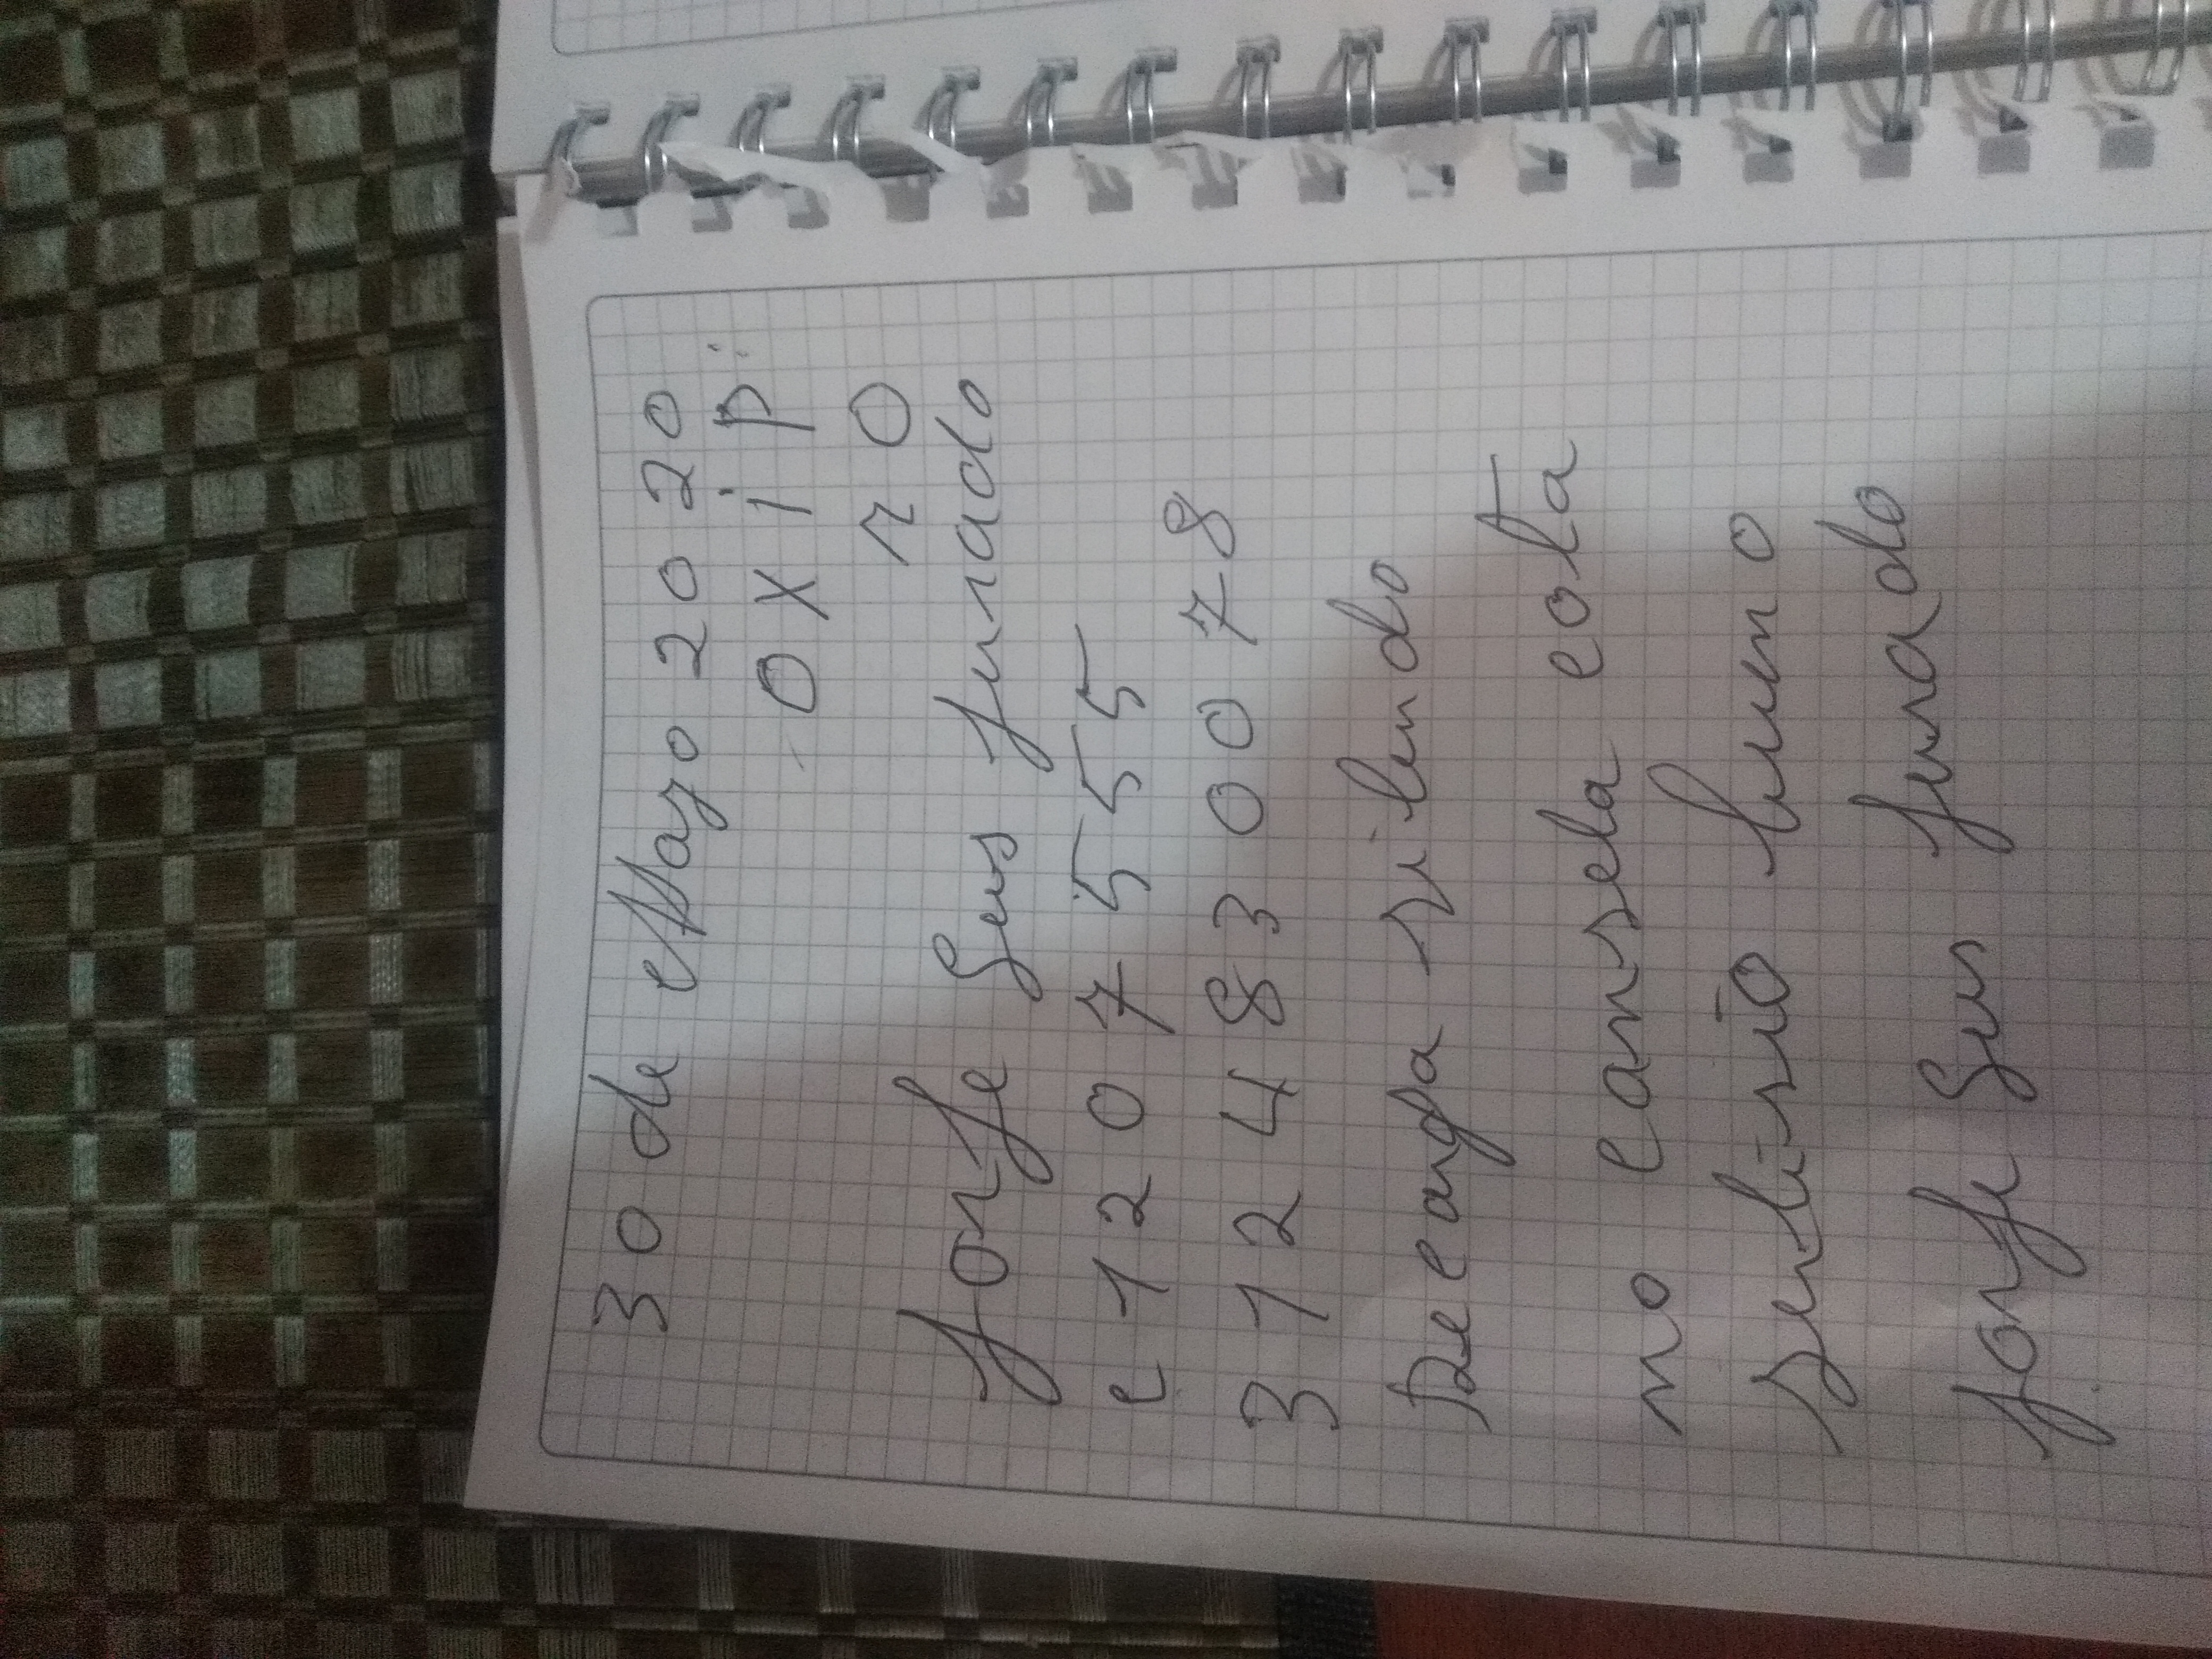 30 de Mayo 2020
oxip:
ro
Jorge Luis jurado
c 1207555
3124830078
De carga silendo
no cansela cota
serbisio bueno
Jorge Luis jurado